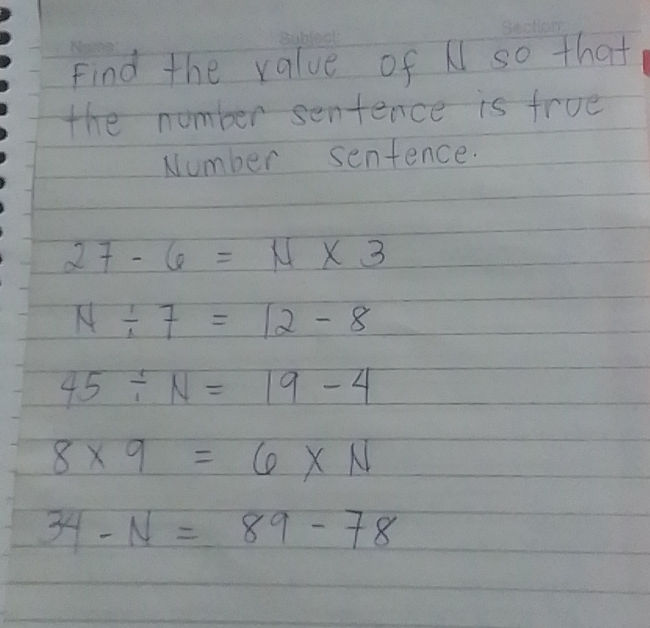 Name: Subject: Section:
Find the value of N so that
the number sentence is true
Number sentence.
27 - 6 = N x 3
N ÷ 7 = 12 - 8
45 ÷ N = 19 - 4
8 x 9 = 6 x N
34 - N = 89 - 78